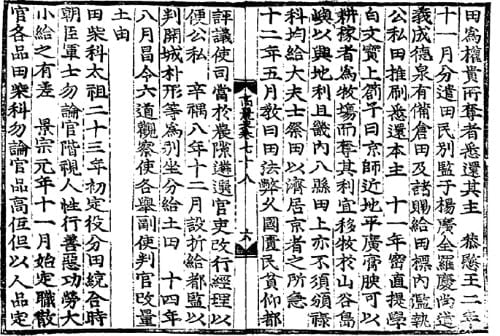 田爲權貴所奪者悉還其主 恭愍王二年
十一月分遣田民別監于楊廣全羅慶尙道
義成德泉有備倉田及諸賜給田標內濫執
公私田推刷悉還本主 十一年密直提學
白文寶上箚子曰京師近地平廣膏腴可以
耕稼者爲牧場而奪其利宜移牧於山谷島
嶼以興地利且畿內八縣田上亦不須頒祿
科均給大夫士祭田以濟居京者之所急
十二年五月敎曰田法弊久國匱民貧仰都
高麗史卷七十八 六
評議使司當於農隙遴選官吏改行經理以
便公私 辛禑八年十二月設折給都監以
判開城朴形等爲別坐分給土田 十四年
八月昌令六道觀察使各擧副使判官改量
土田
田柴科太祖二十三年初定役分田統合時
朝臣軍士勿論官階視人性行善惡功勞大
小給之有差 景宗元年十一月始定職散
官各品田柴科勿論官品高低但以人品定